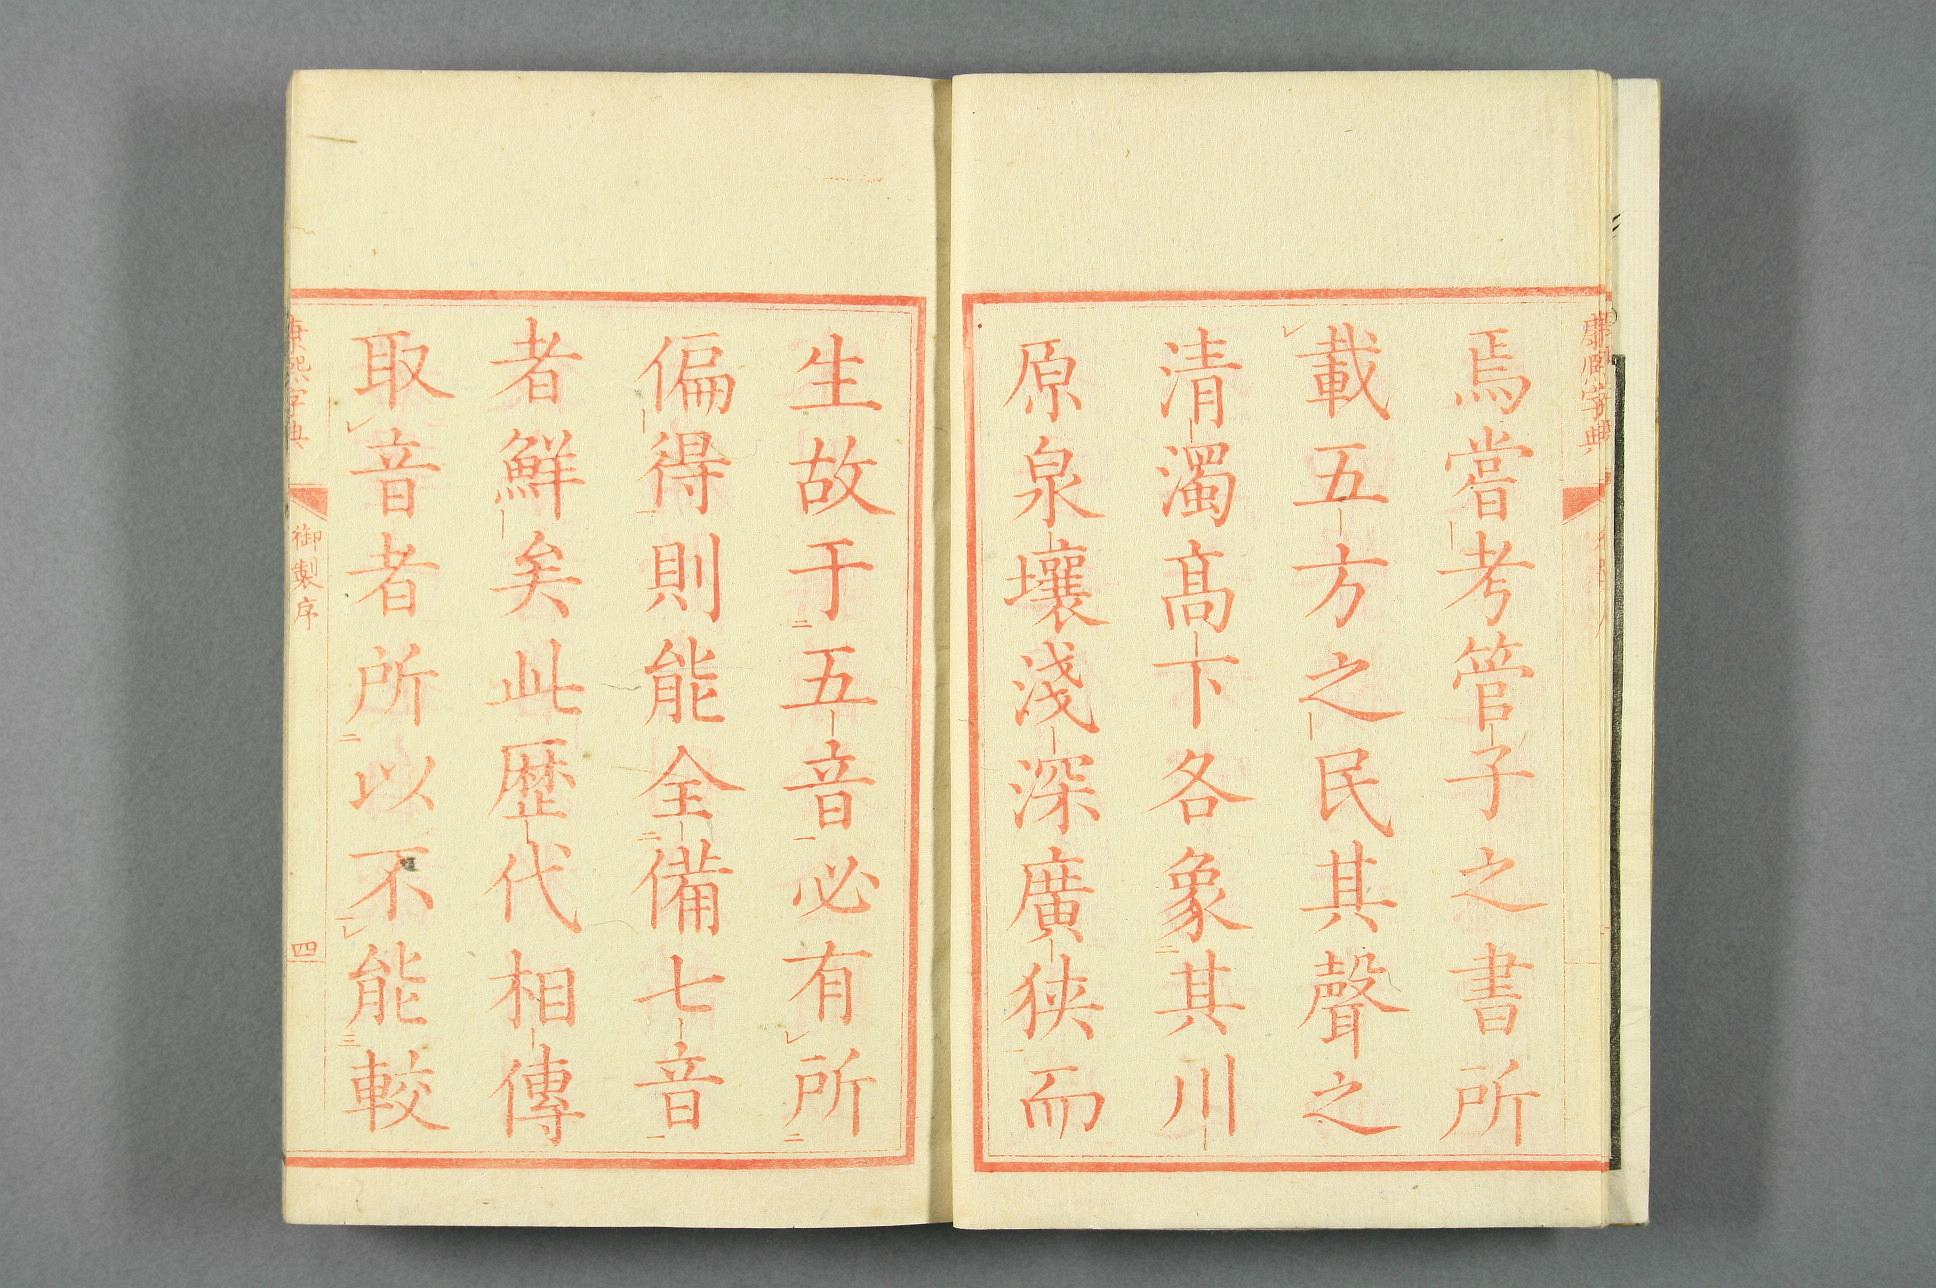 焉嘗考管子之書所
載五方之民其聲之
清濁高下各象其川
原泉壤淺深廣狹而
生故于五音必有所
偏得則能全備七音
者鮮矣此歷代相傳
取音者所以不能較
康熙字典
御製序
四